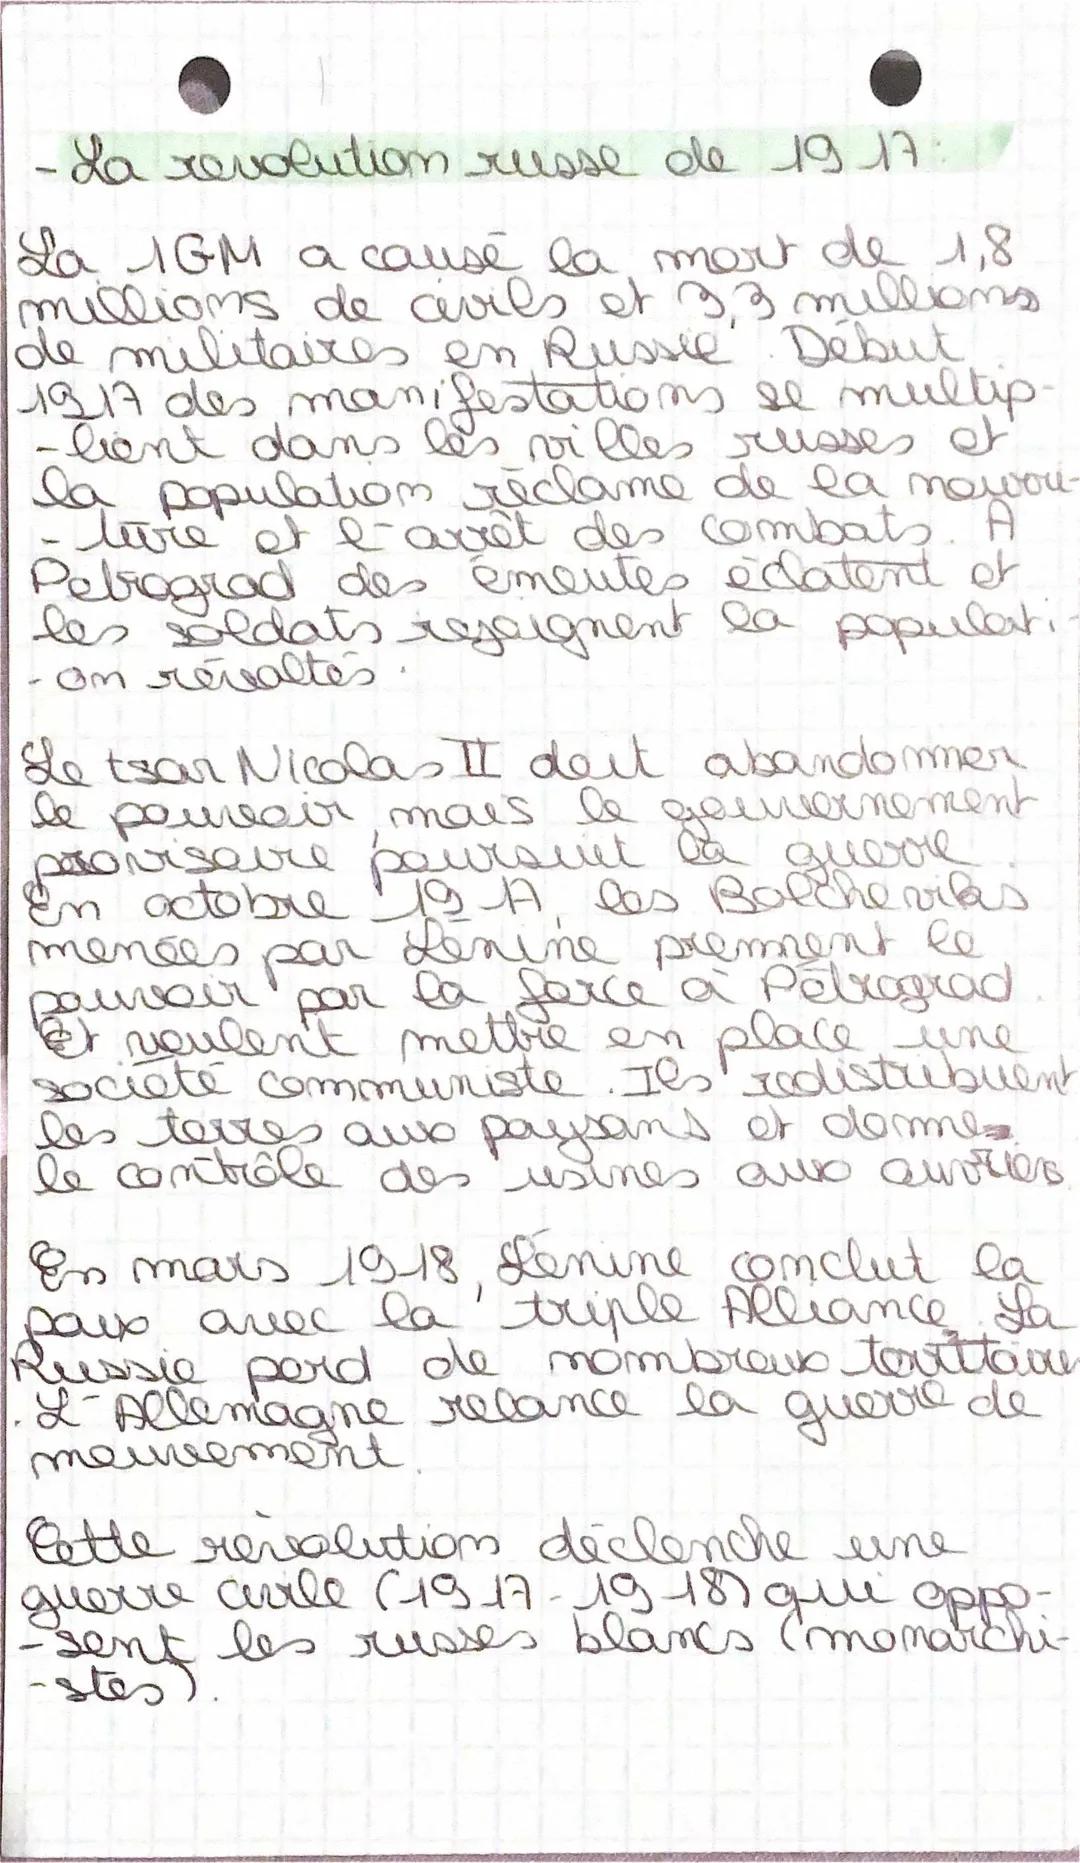 - La revolution russe de 1917:
La 1GM a causé la mort de 1,8
millions de civils et 3,3 millions
de militaires en Russie. Début
1917 des manifestations se multip-
-lient dans les villes russes et
la population réclame de la nourri-
-ture et l'arrêt des combats. A
Petrograd des émeutes éclatent et
les soldats rejoignent la populati-
-on révoltés.
Le tsar Nicolas II doit abandonner
le pouvoir, mais le gouvernement
provisoire poursuit la guerre.
En octobre 1917, les Bolcheviks
menées par Lénine prennent le
pouvoir par la force à Pétrograd.
Et veulent mettre en place une
société communiste. Ils redistribuent
les terres aux paysans et donnes
le contrôle des usines aux ouvriers
En mars 1918, Lénine conclut la
paix avec la triple Alliance. La
Russie perd de nombreux
. L'Allemagne relance la guerre de
mouvement.
Cette révolution déclenche une
guerre civile (1917-1918) qui oppo-
-sent les russes blancs (monarchi-
-stes).